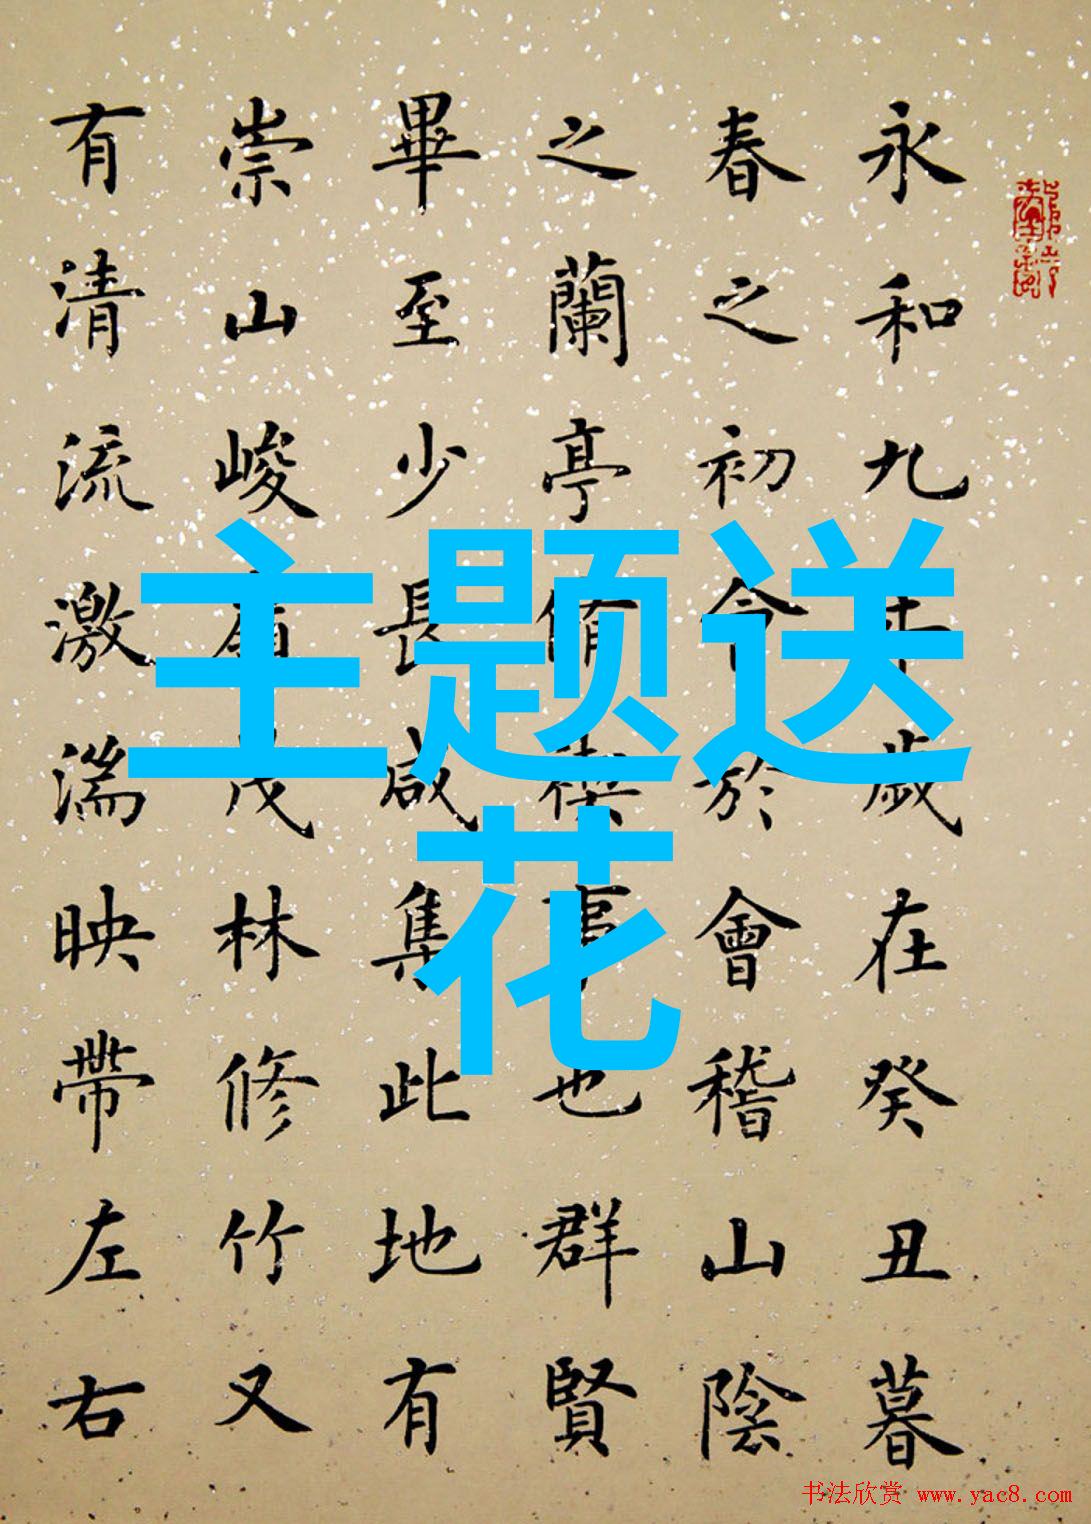 永和九年歲在癸丑暮
春之初會於會稽山陰
之蘭亭脩禊事也群賢
畢至少長咸集此地有
崇山峻茂林修竹又
有清流激湍映帶左右
主题送
花
书法欣赏 www.yac8.com